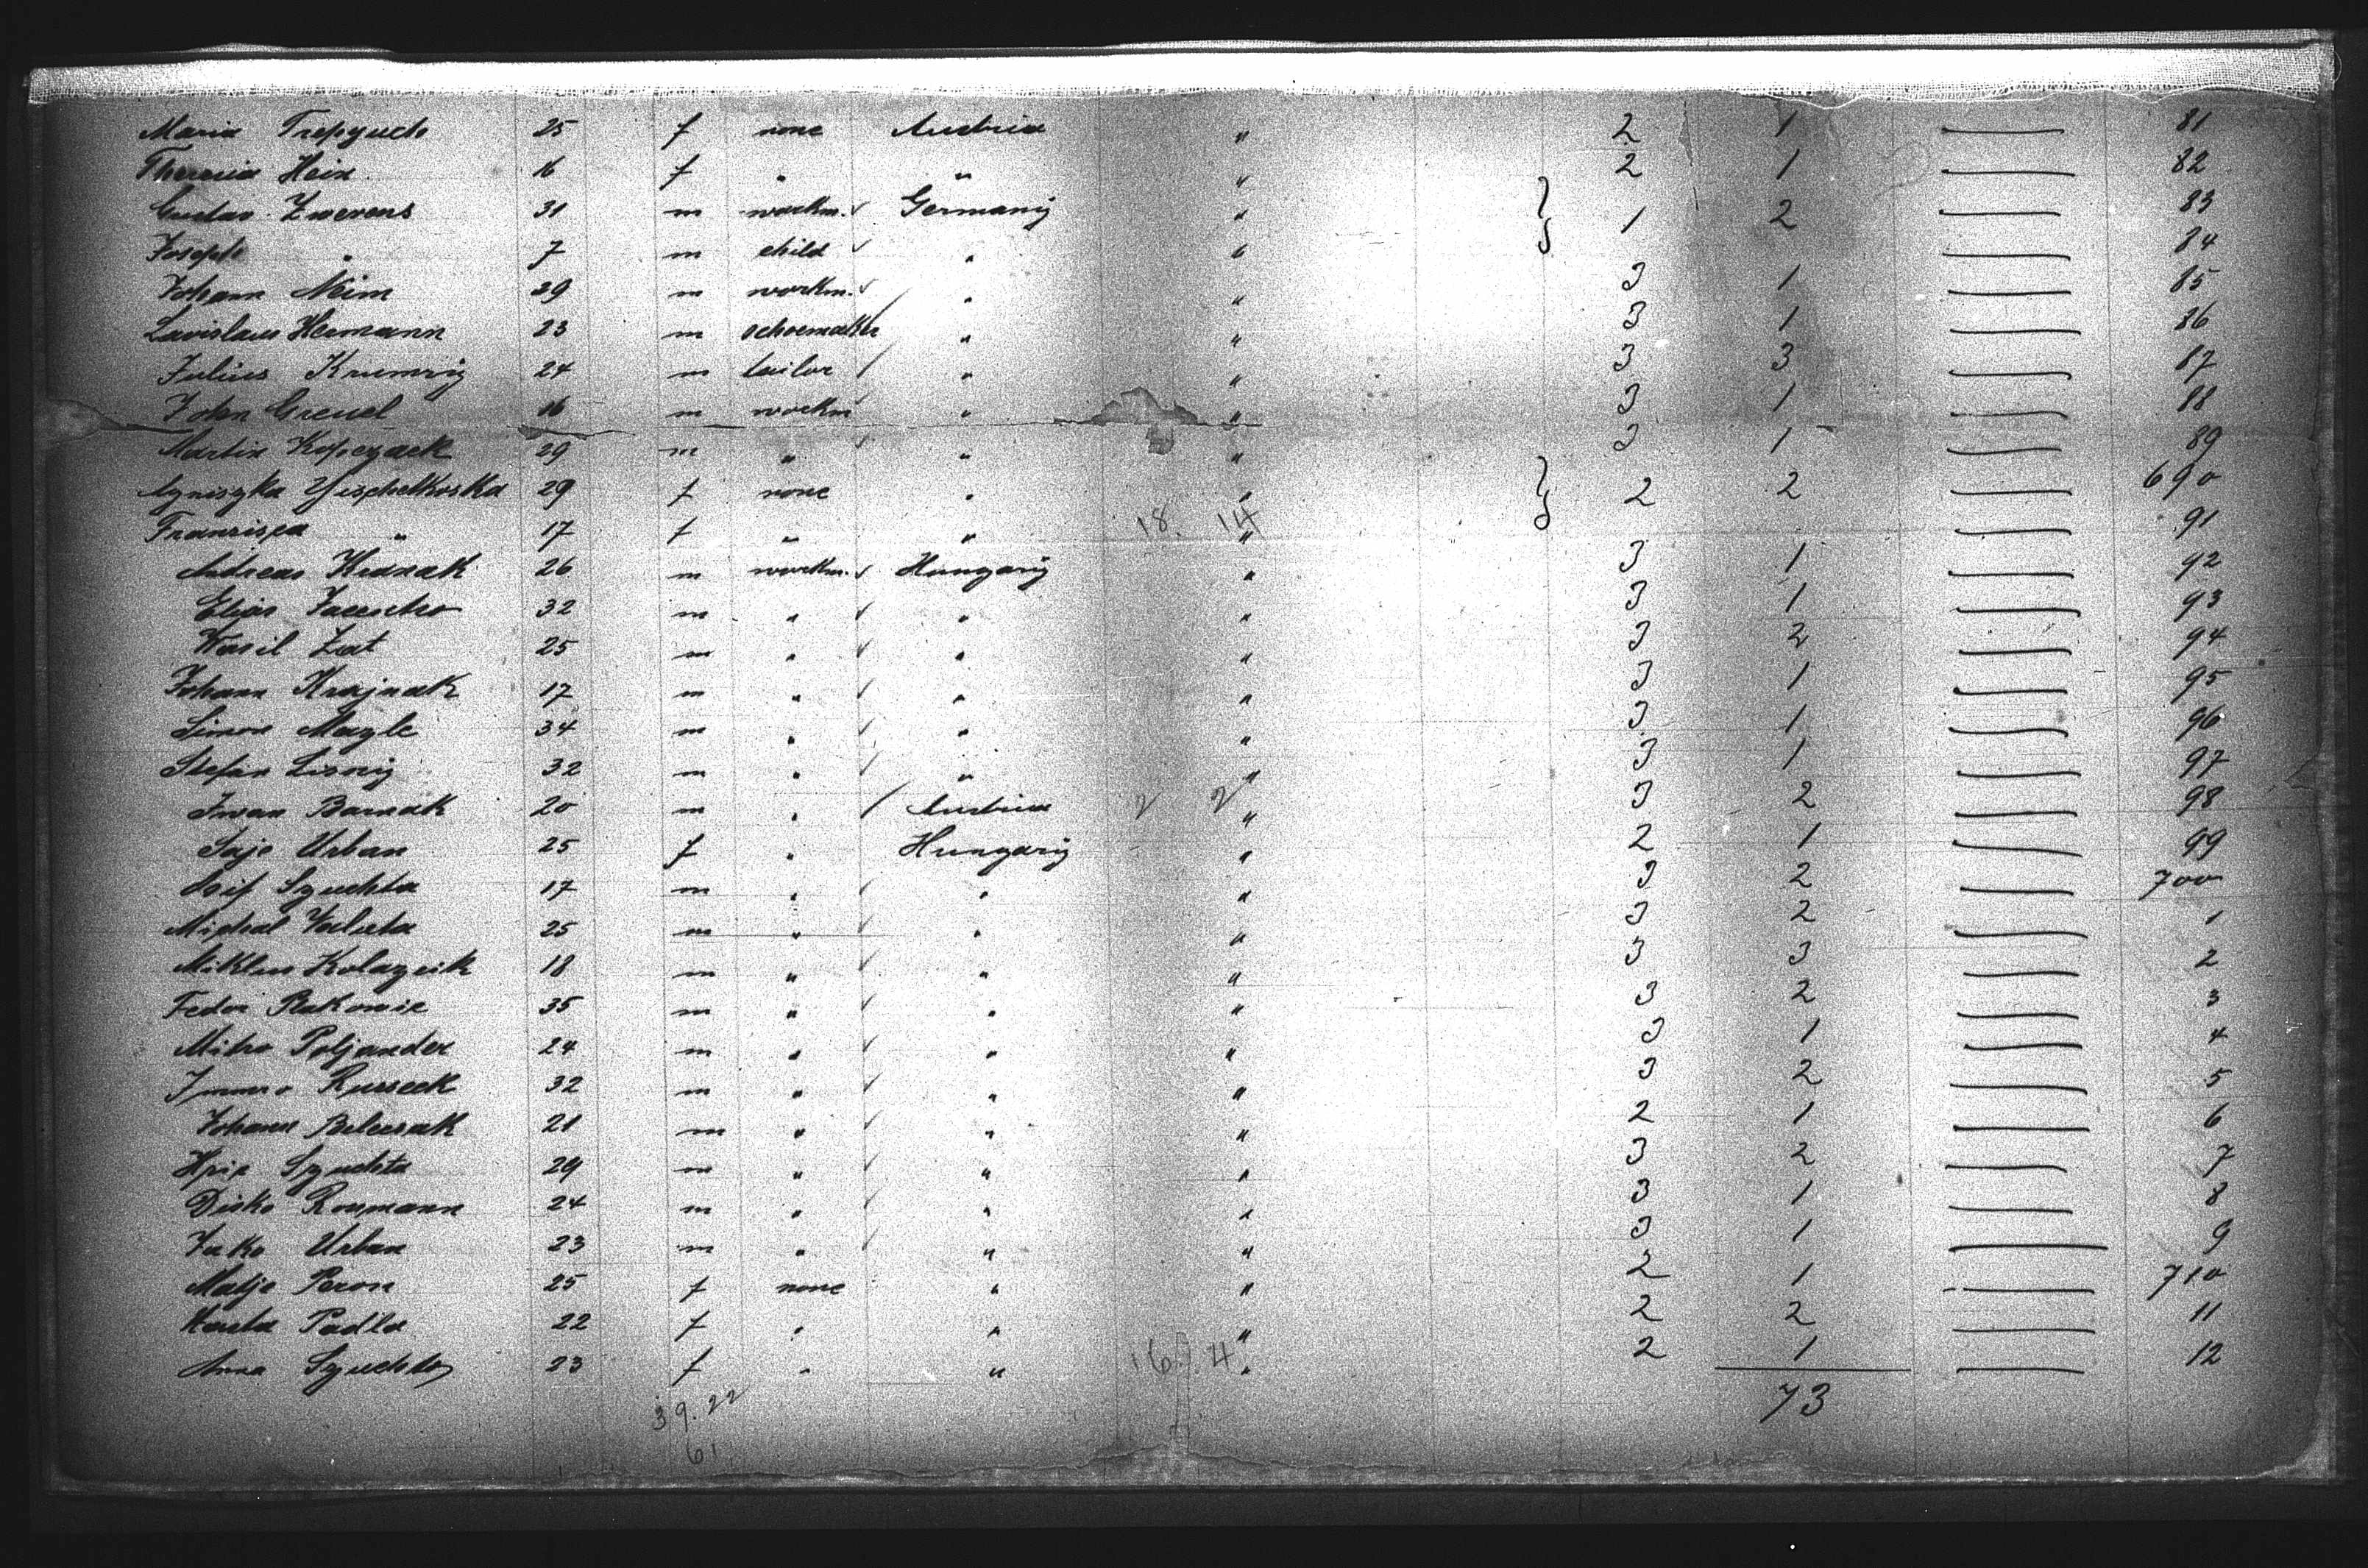 Maria 25 f none Austria " 2 1 — 81
Theresia Hein 16 f " " " 2 1 — 82
Gustav Zwevens 31 m workm. Germany " } 1 2 — 83
Joseph " 7 m child " " — 84
Johann Neim 29 m workm. " " 3 1 — 85
Lavislaus Hermann 23 m schoemaker " " 3 1 — 86
Julius Krumrig 24 m tailor " " 3 3 — 87
John Greuel 16 m workm " " 3 1 — 88
Martin Kopczack 29 m " " " 3 1 — 89
Agniszka 29 f none " " } 2 2 — 690
Franzisca " 17 f " " 18. 14 " — 91
Andreas 26 m workm. Hungary " 3 1 — 92
Elias 32 m " " " 3 1 — 93
Wasil Zat 25 m " " " 3 2 — 94
Johann Krajnak 17 m " " " 3 1 — 95
Simon Magle 34 m " " " 3 1 — 96
Stefan Lisniy 32 m " " " 3 1 — 97
Iwan Barnak 20 m " Austria 2 2 " 3 2 — 98
Urban 25 f " Hungary " 2 1 — 99
Szuchta 17 m " " " 3 2 — 700
Michal 25 m " " " 3 2 — 1
Miklus Kolazcik 18 m " " " 3 3 — 2
Fedor 35 m " " " 3 2 — 3
Mitro Poljander 24 m " " " 3 1 — 4
Russeck 32 m " " " 3 2 — 5
Johann 21 m " " " 2 1 — 6
Szuchta 29 m " " " 3 2 — 7
Rosmann 24 m " " " 3 1 — 8
Urban 23 m " " " 3 1 — 9
Peron 25 f none " " 2 1 — 710
Padla 22 f " " " 2 2 — 11
Anna Szuchta 23 f " " 16. 4 " 2 1 — 12
39. 22 73
61